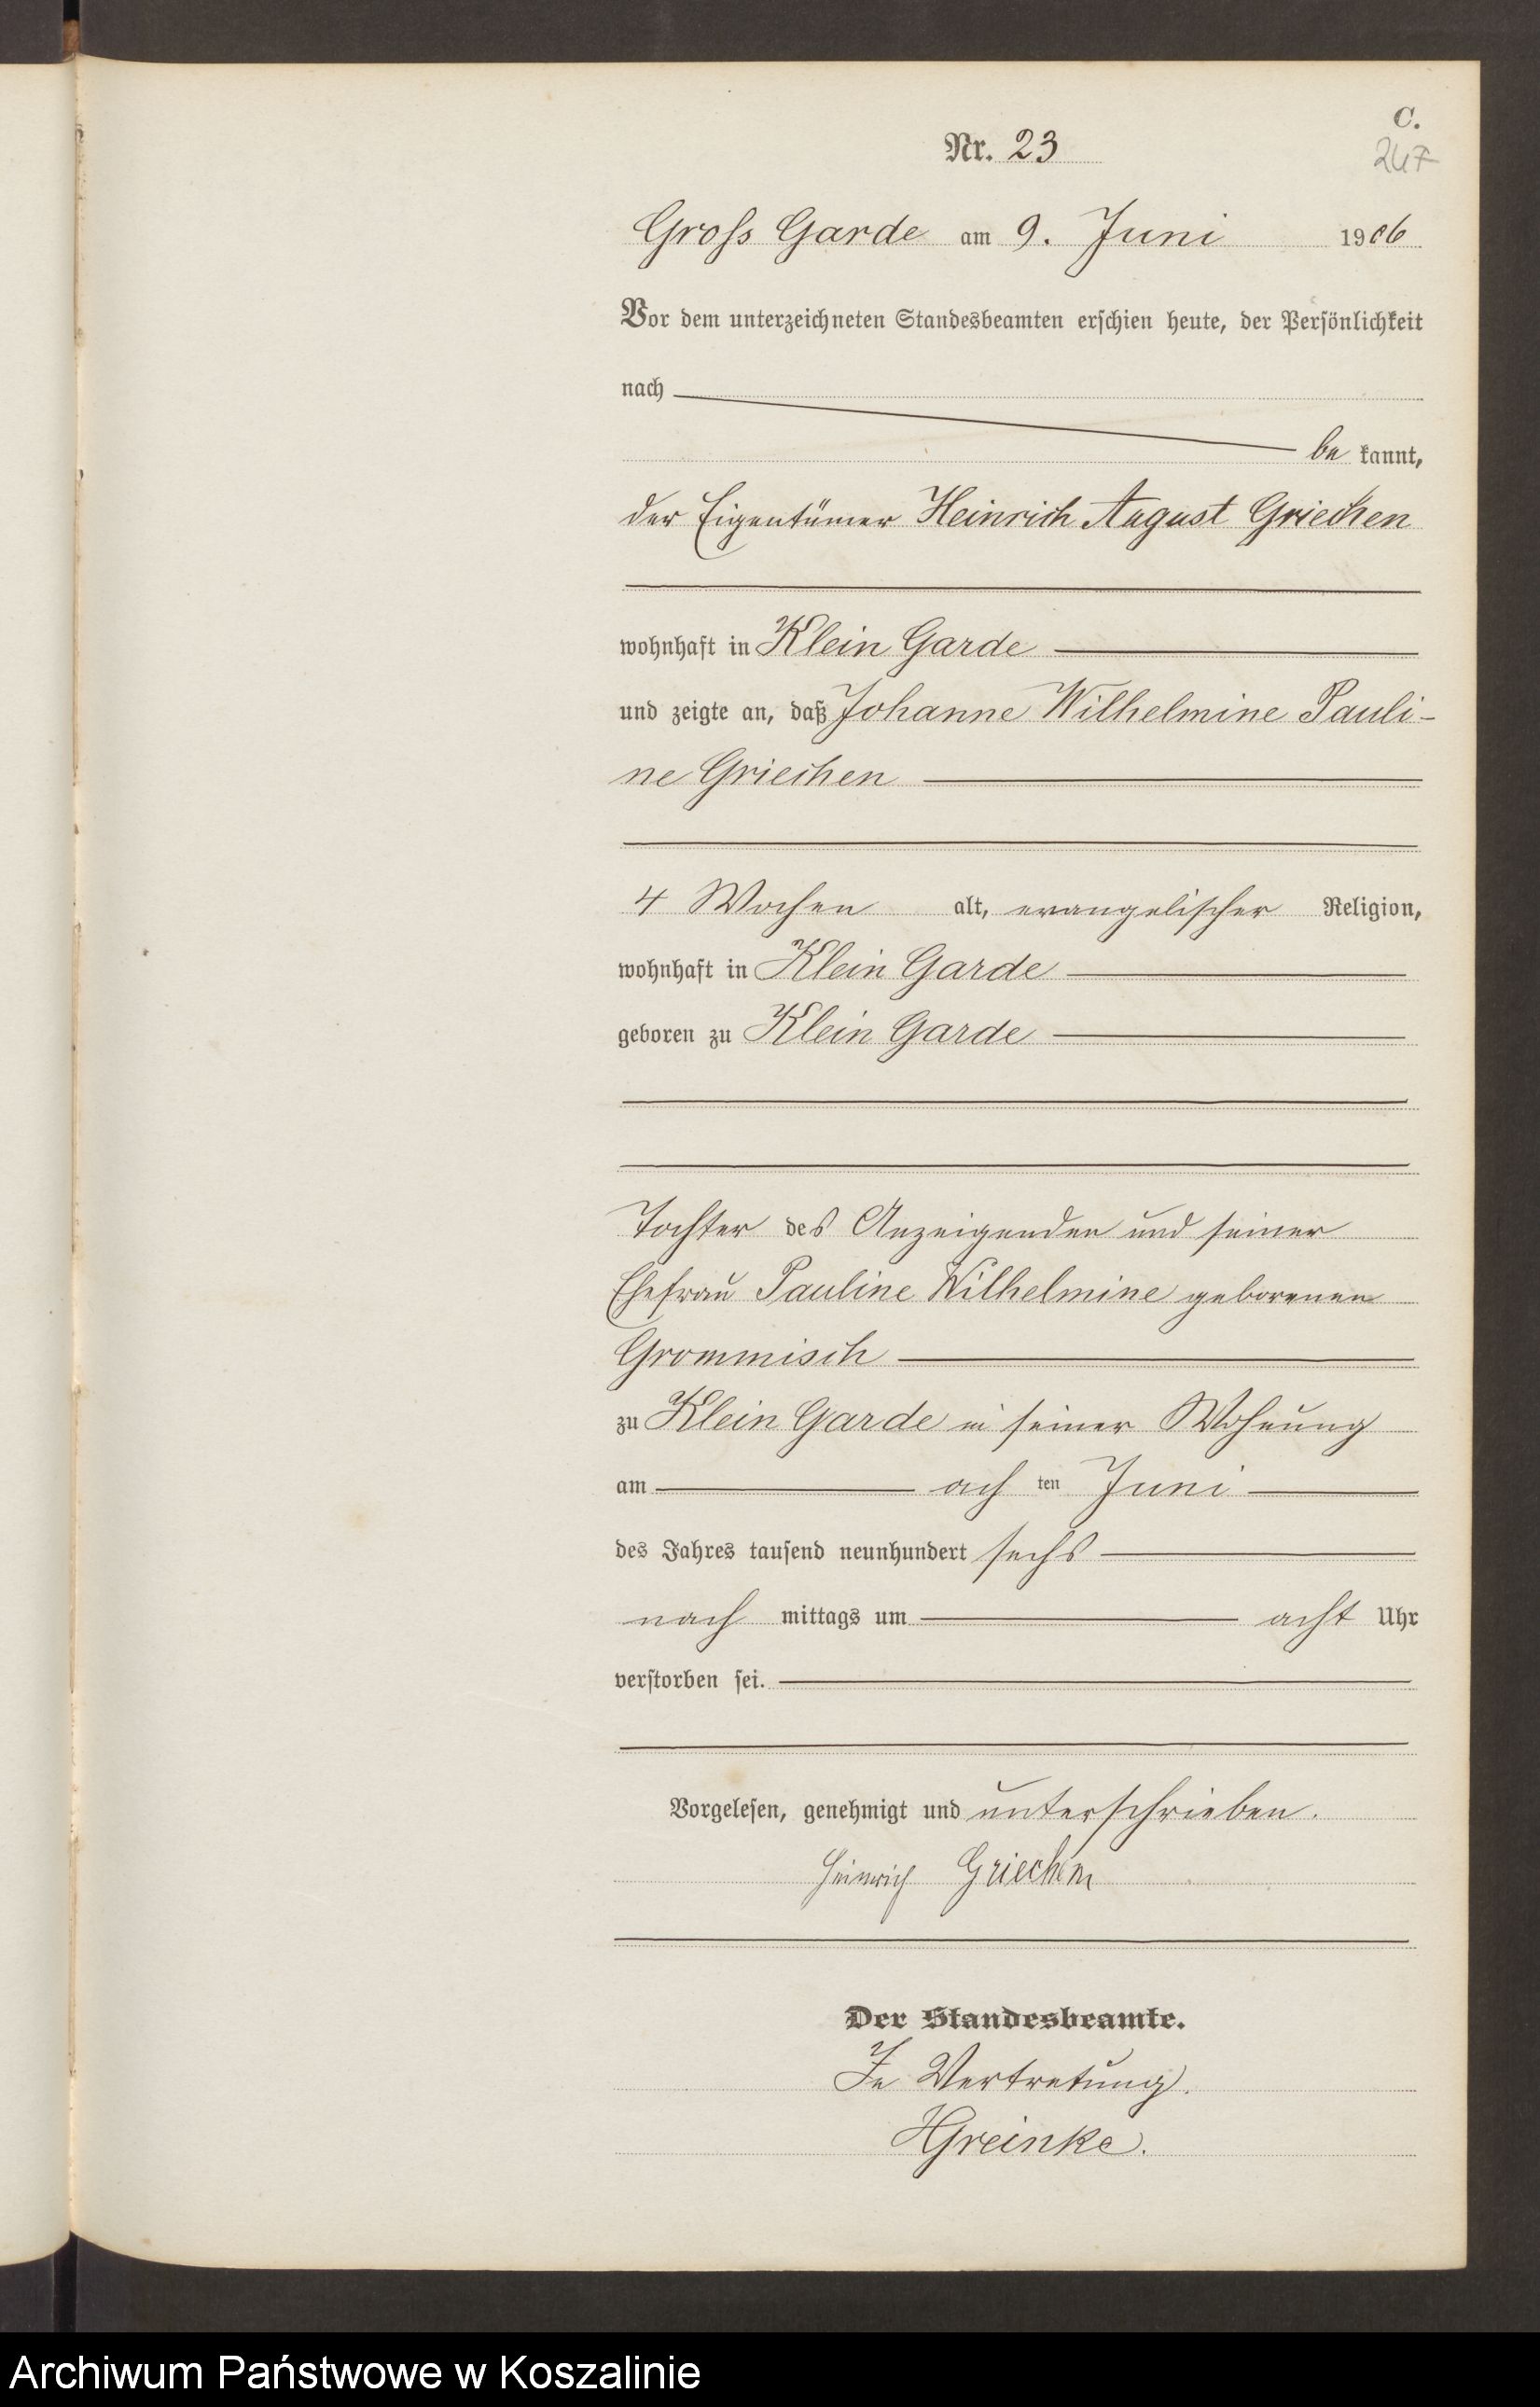 C.
Nr. 23
247
Gross Garde am 9. Juni 1906
Vor dem unterzeichneten Standesbeamten erschien heute, der Persönlichkeit
nach
be kannt,
der Eigentümer Heinrich August Griechen
wohnhaft in Klein Garde
und zeigte an, daß Johanne Wilhelmine Pauli-
ne Griechen
4 Wochen alt, evangelischer Religion,
wohnhaft in Klein Garde
geboren zu Klein Garde
Tochter des Anzeigenden und seiner
Ehefrau Pauline Wilhelmine geborenen
Grommisch
zu Klein Garde in seiner Wohnung
am ach ten Juni
des Jahres tausend neunhundert sechs
nach mittags um acht Uhr
verstorben sei.
Vorgelesen, genehmigt und unterschrieben.
Heinrich Griechen
Der Standesbeamte.
In Vertretung.
HGreinke.
Archiwum Państwowe w Koszalinie